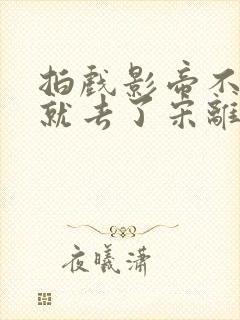 拍戏影帝不
就去了宋離
夜曦潇